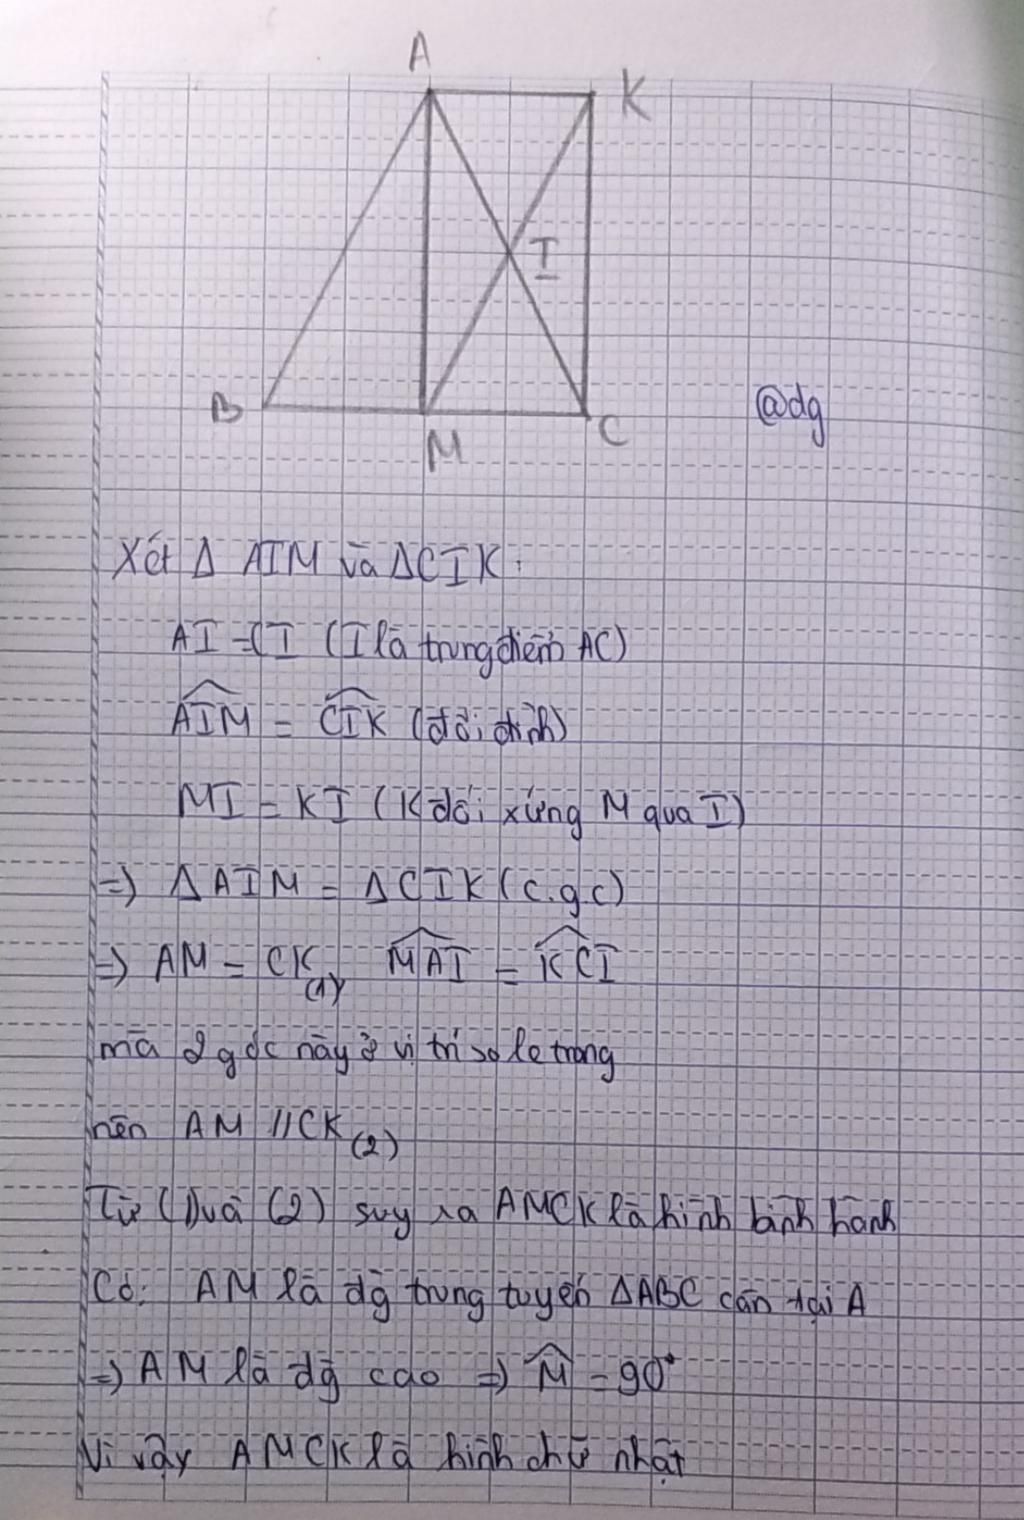 A
K
I
B
M
C
@dg
Xét Δ AIM và ΔCIK:
AI = CI (I là trung điểm AC)
AIM = CIK (đối đỉnh)
MI = KI (K đối xứng M qua I)
=> ΔAIM = ΔCIK (c.g.c)
=> AM = CK (1), MAI = KCI
mà 2 góc này ở vị trí so le trong
nên AM // CK (2)
Từ (1) và (2) suy ra AMCK là hình bình hành
Có: AM là đg trung tuyến ΔABC cân tại A
=> AM là đg cao => M = 90°
Vì vậy AMCK là hình chữ nhật